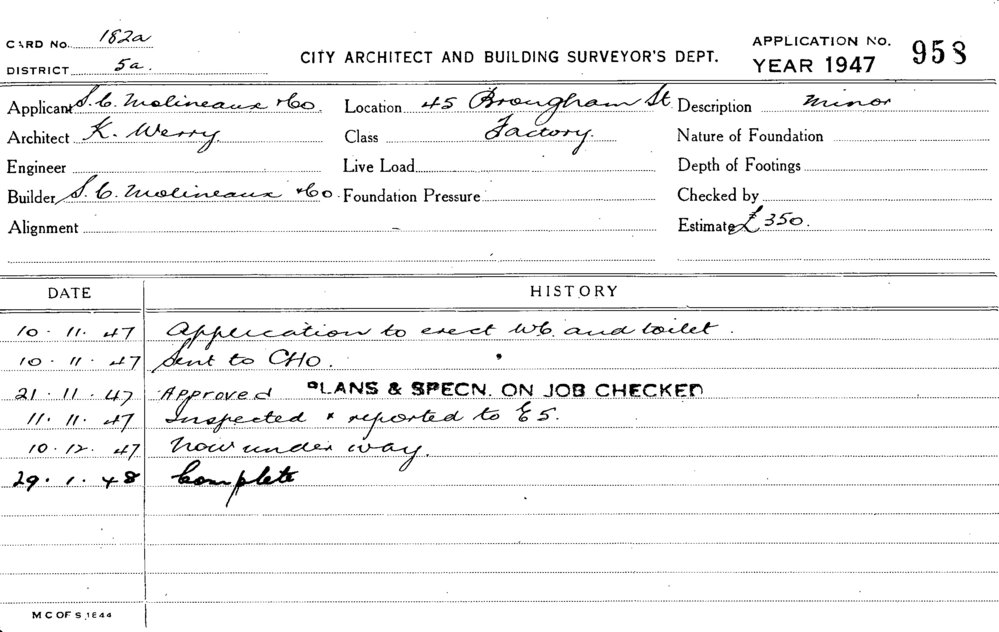 CARD No. 182a
DISTRICT 5a.
CITY ARCHITECT AND BUILDING SURVEYOR'S DEPT.
APPLICATION No. 958
YEAR 1947
Applicant S. C. Molineaux & Co. Location 45 Brougham St. Description Minor
Architect K. Werry Class Factory. Nature of Foundation
Engineer Live Load Depth of Footings
Builder S. C. Molineaux & Co. Foundation Pressure Checked by
Alignment Estimate £350.
DATE HISTORY
10.11.47 Application to erect WC. and toilet.
10.11.47 Sent to CHO.
21.11.47 Approved PLANS & SPECN. ON JOB CHECKED
11.11.47 Inspected & reported to ES.
10.12.47 Now under way.
29.1.48 Complete
M C OF S 1644